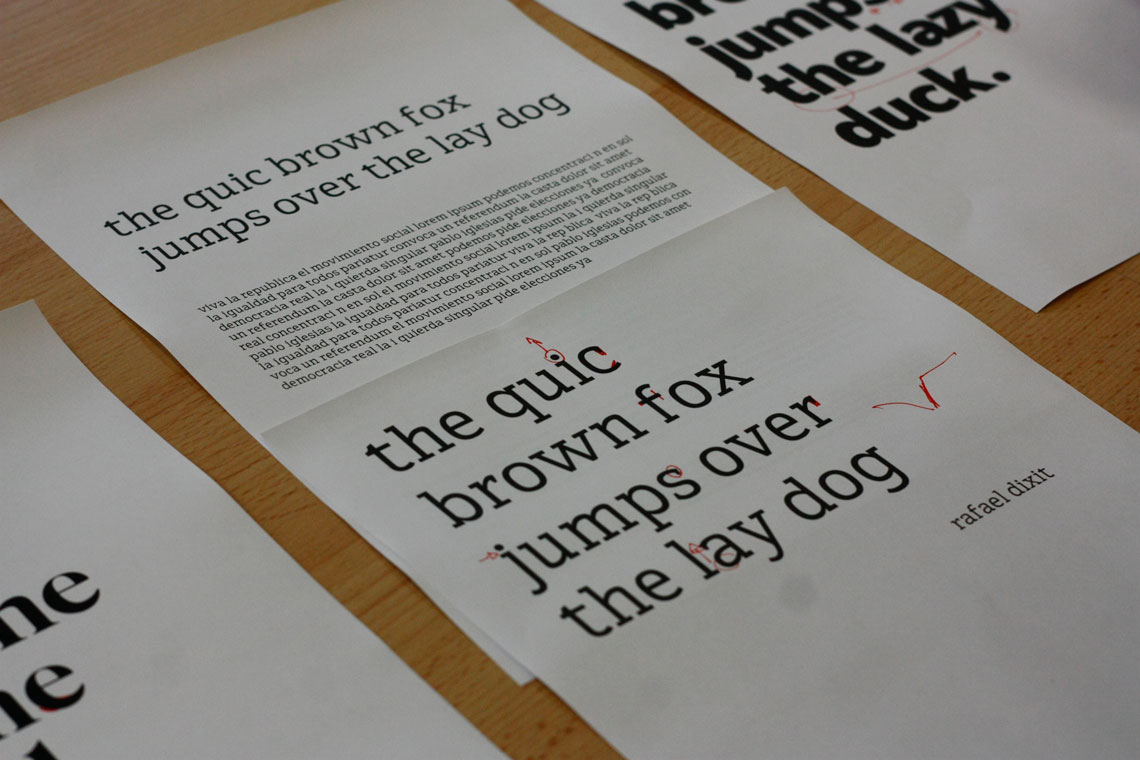 the quic brown fox
jumps over the lay dog
viva la republica el movimiento social lorem ipsum podemos concentraci n en sol
la igualdad para todos pariatur convoca un referendum la casta dolor sit amet
democracia real la i quierda singular pablo iglesias pide elecciones ya convoca
un referendum la casta dolor sit amet podemos pide elecciones ya democracia
real concentraci n en sol el movimiento social lorem ipsum la i quierda singular
pablo iglesias la igualdad para todos pariatur viva la rep blica viva la rep blica
la igualdad para todos pariatur concentraci n en sol pablo iglesias podemos con
voca un referendum el movimiento social lorem ipsum la casta dolor sit amet
democracia real la i quierda singular pide elecciones ya
the quic
brown fox
jumps over
the lay dog
rafael dixit
jumps
the lazy
duck.